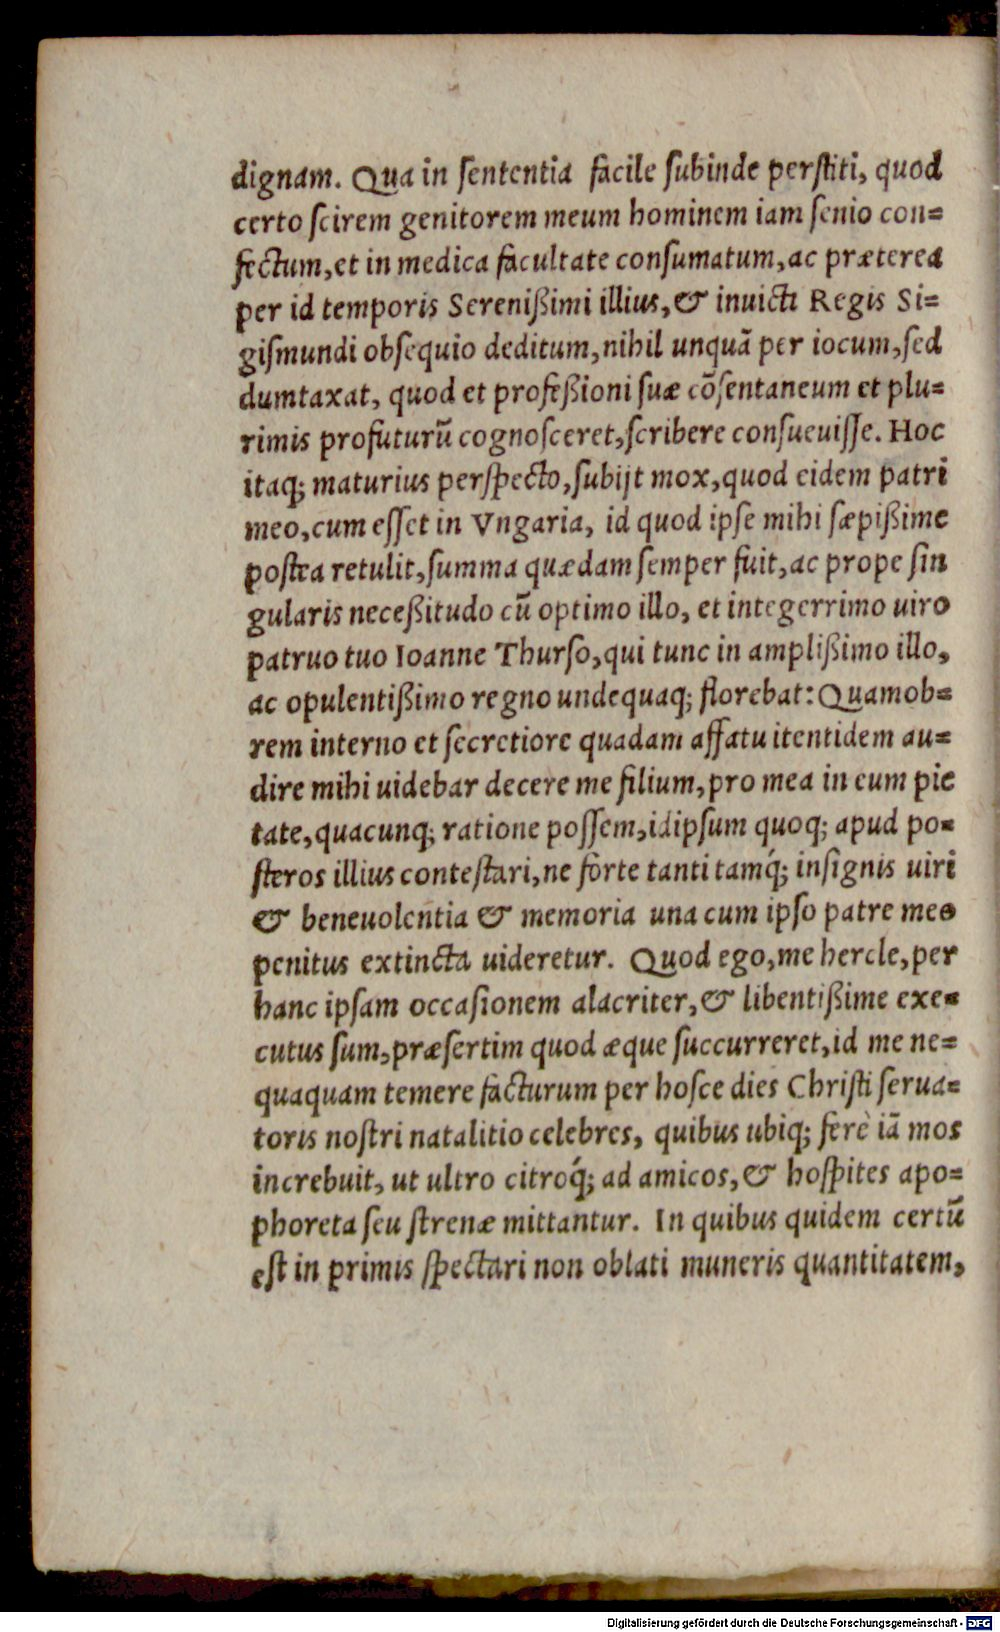 dignam. Qua in ſententia facile ſubinde perſtiti, quod
certo ſcirem genitorem meum hominem iam ſenio con=
fectum, et in medica facultate conſumatum, ac præterea
per id temporis Sereniſsimi illius, & inuicti Regis Si=
giſmundi obſequio deditum, nihil unquã per iocum, ſed
dumtaxat, quod et profeſsioni ſuæ cõſentaneum et plu=
rimis profuturũ cognoſceret, ſcribere conſueuiſſe. Hoc
itaq; maturius perſpecto, ſubijt mox, quod eidem patri
meo, cum eſſet in Vngaria, id quod ipſe mihi ſæpiſsime
poſtea retulit, ſumma quædam ſemper fuit, ac prope ſin
gularis neceſsitudo cũ optimo illo, et integerrimo uiro
patruo tuo Ioanne Thurſo, qui tunc in ampliſsimo illo,
ac opulentiſsimo regno undequaq; florebat: Quamob=
rem interno et ſecretiore quadam affatu itentidem au=
dire mihi uidebar decere me filium, pro mea in eum pie
tate, quacunq; ratione poſſem, idipſum quoq; apud po=
ſteros illius conteſtari, ne forte tanti tamq́; inſignis uiri
& beneuolentia & memoria una cum ipſo patre meo
penitus extincta uideretur. Quod ego, me hercle, per
hanc ipſam occaſionem alacriter, & libentiſsime exe=
cutus ſum, præſertim quod æque ſuccurreret, id me ne=
quaquam temere facturum per hoſce dies Chriſti ſerua=
toris noſtri natalitio celebres, quibus ubiq; ferè iã mos
increbuit, ut ultro citroq́; ad amicos, & hoſpites apo=
phoreta ſeu ſtrenæ mittantur. In quibus quidem certũ
eſt in primis ſpectari non oblati muneris quantitatem,
Digitalisierung gefördert durch die Deutsche Forschungsgemeinschaft - DFG